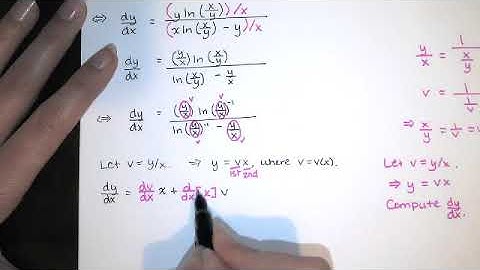 ⇔ dy/dx = (y ln(x/y))/x / (x ln(x/y) - y)/x
⇔ dy/dx = (y/x) ln(x/y) / ln(x/y) - y/x
⇔ dy/dx = (y/x) ln(y/x)⁻¹ / ln(y/x)⁻¹ - (y/x)
v v
v v
Let v = y/x. ⇒ y = vx, where v = v(x).
1st 2nd
dy/dx = dv/dx x + d/dx[x] v
y/x = 1 / x/y
v = 1 / x/y
⇒ x/y = 1/v = v
Let v = y/x.
⇒ y = vx
Compute dy/dx.